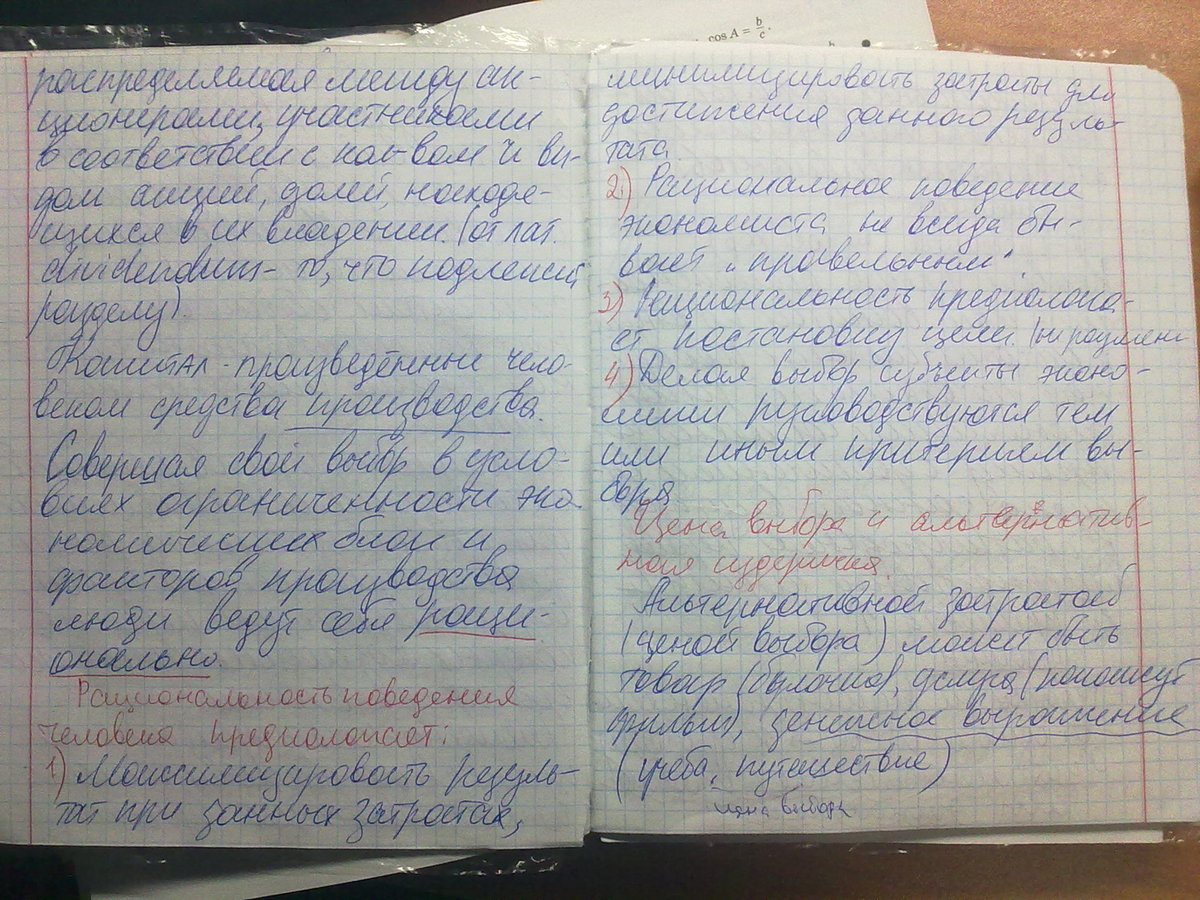 cos A = b/c.
распределяемая между ак-
ционерами, участниками
в соответствии с кол-вом и ви-
дом акций, долей, находя-
щихся в их владении. (от лат.
dividendum - то, что подлежит
разделу).
Капитал - произведённые чело-
веком средства производства.
Совершая свой выбор в усло-
виях ограниченности эко-
номических благ и
факторов производства
люди ведут себя раци-
онально.
Рациональность поведения
человека предполагает:
1) Максимизировать резуль-
тат при данных затратах,
минимизировать затраты для
достижения данного резуль-
тата.
2) Рациональное поведение
экономиста не всегда бы-
вает "правельным".
3) Рациональность предполага-
ет постановку цели.
4) Делая выбор субъекты эконо-
мики руководствуются тем
или иным критерием вы-
бора
Цена выбора и альтернатив-
ная издержка.
Альтернативной затратой
(ценой выбора) может быть
товар (булочка), услуга
фильм), денежное выражение
(учеба, путешествие)
цена выбора